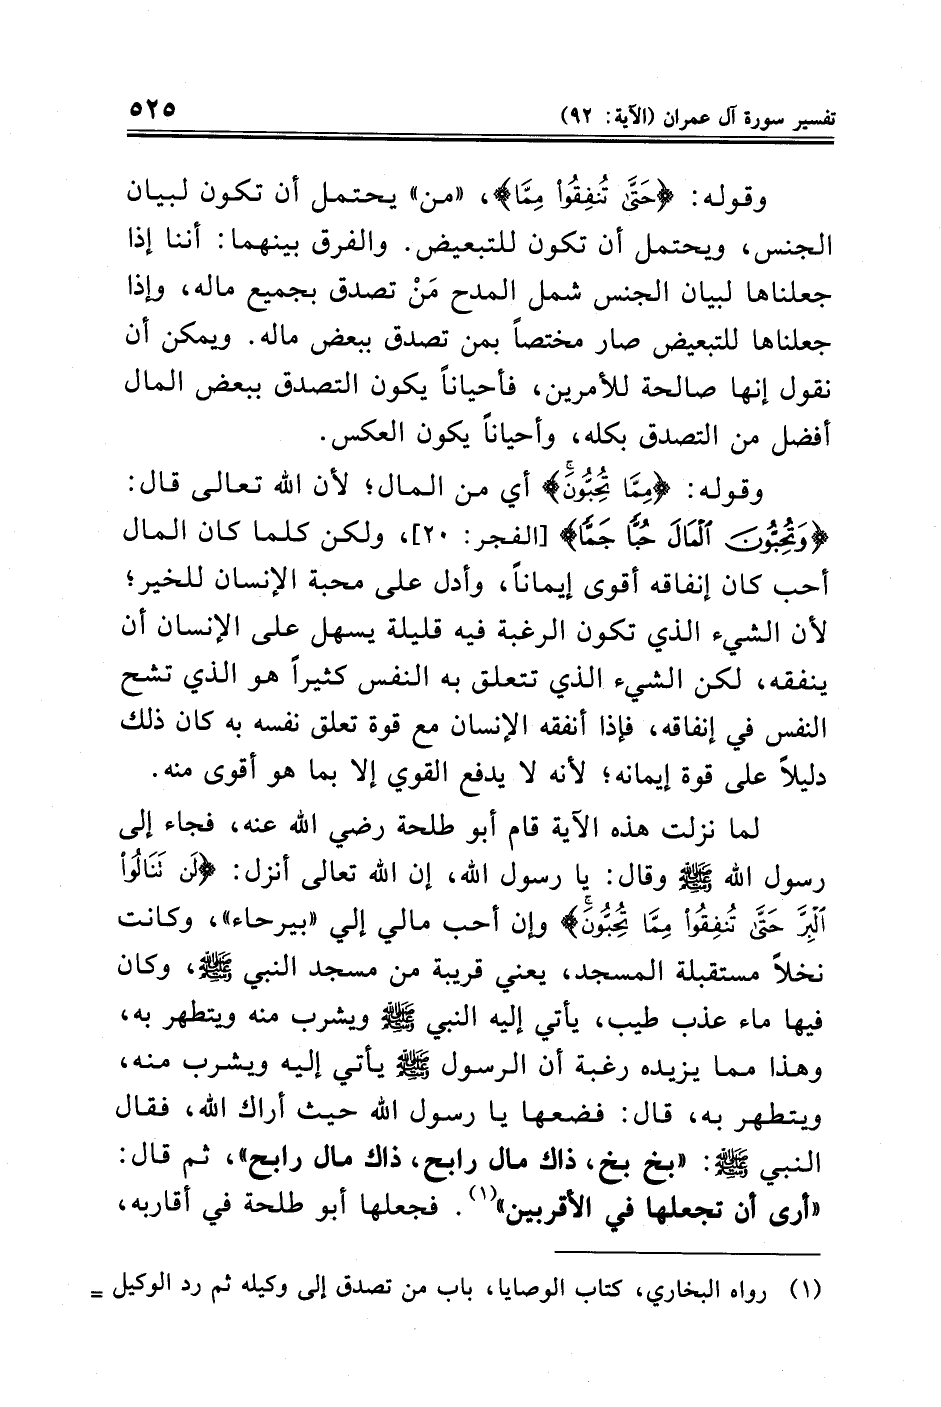 تفسير سورة آل عمران (الآية: ٩٢) ٥٢٥
وقوله: ﴿حَتَّىٰ تُنفِقُوا۟ مِمَّا﴾، «من» يحتمل أن تكون لبيان
الجنس، ويحتمل أن تكون للتبعيض. والفرق بينهما: أننا إذا
جعلناها لبيان الجنس شمل المدح مَنْ تصدق بجميع ماله، وإذا
جعلناها للتبعيض صار مختصاً بمن تصدق ببعض ماله. ويمكن أن
نقول إنها صالحة للأمرين، فأحياناً يكون التصدق ببعض المال
أفضل من التصدق بكله، وأحياناً يكون العكس.
وقوله: ﴿مِمَّا تُحِبُّونَۚ﴾ أي من المال؛ لأن الله تعالى قال:
﴿وَتُحِبُّونَ ٱلْمَالَ حُبًّا جَمًّا﴾ [الفجر: ٢٠]، ولكن كلما كان المال
أحب كان إنفاقه أقوى إيماناً، وأدل على محبة الإنسان للخير؛
لأن الشيء الذي تكون الرغبة فيه قليلة يسهل على الإنسان أن
ينفقه، لكن الشيء الذي تتعلق به النفس كثيراً هو الذي تشح
النفس في إنفاقه، فإذا أنفقه الإنسان مع قوة تعلق نفسه به كان ذلك
دليلاً على قوة إيمانه؛ لأنه لا يدفع القوي إلا بما هو أقوى منه.
لما نزلت هذه الآية قام أبو طلحة رضي الله عنه، فجاء إلى
رسول الله ﷺ وقال: يا رسول الله، إن الله تعالى أنزل: ﴿لَن تَنَالُوا۟
ٱلْبِرَّ حَتَّىٰ تُنفِقُوا۟ مِمَّا تُحِبُّونَۚ﴾ وإن أحب مالي إلي «بيرحاء»، وكانت
نخلاً مستقبلة المسجد، يعني قريبة من مسجد النبي ﷺ، وكان
فيها ماء عذب طيب، يأتي إليه النبي ﷺ ويشرب منه ويتطهر به،
وهذا مما يزيده رغبة أن الرسول ﷺ يأتي إليه ويشرب منه،
ويتطهر به، قال: فضعها يا رسول الله حيث أراك الله، فقال
النبي ﷺ: «بخ بخ، ذاك مال رابح، ذاك مال رابح»، ثم قال:
«أرى أن تجعلها في الأقربين»(١). فجعلها أبو طلحة في أقاربه،
(١) رواه البخاري، كتاب الوصايا، باب من تصدق إلى وكيله ثم رد الوكيل =